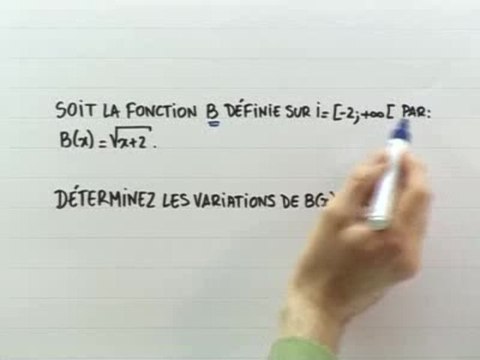 SOIT LA FONCTION B DÉFINIE SUR i=[-2;+∞[ PAR:
B(x)=√x+2.
DÉTERMINEZ LES VARIATIONS DE B(